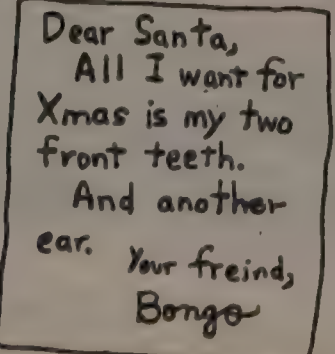 Dear Santa,
All I want for
Xmas is my two
front teeth.
And another
ear. Your freind,
Bongo